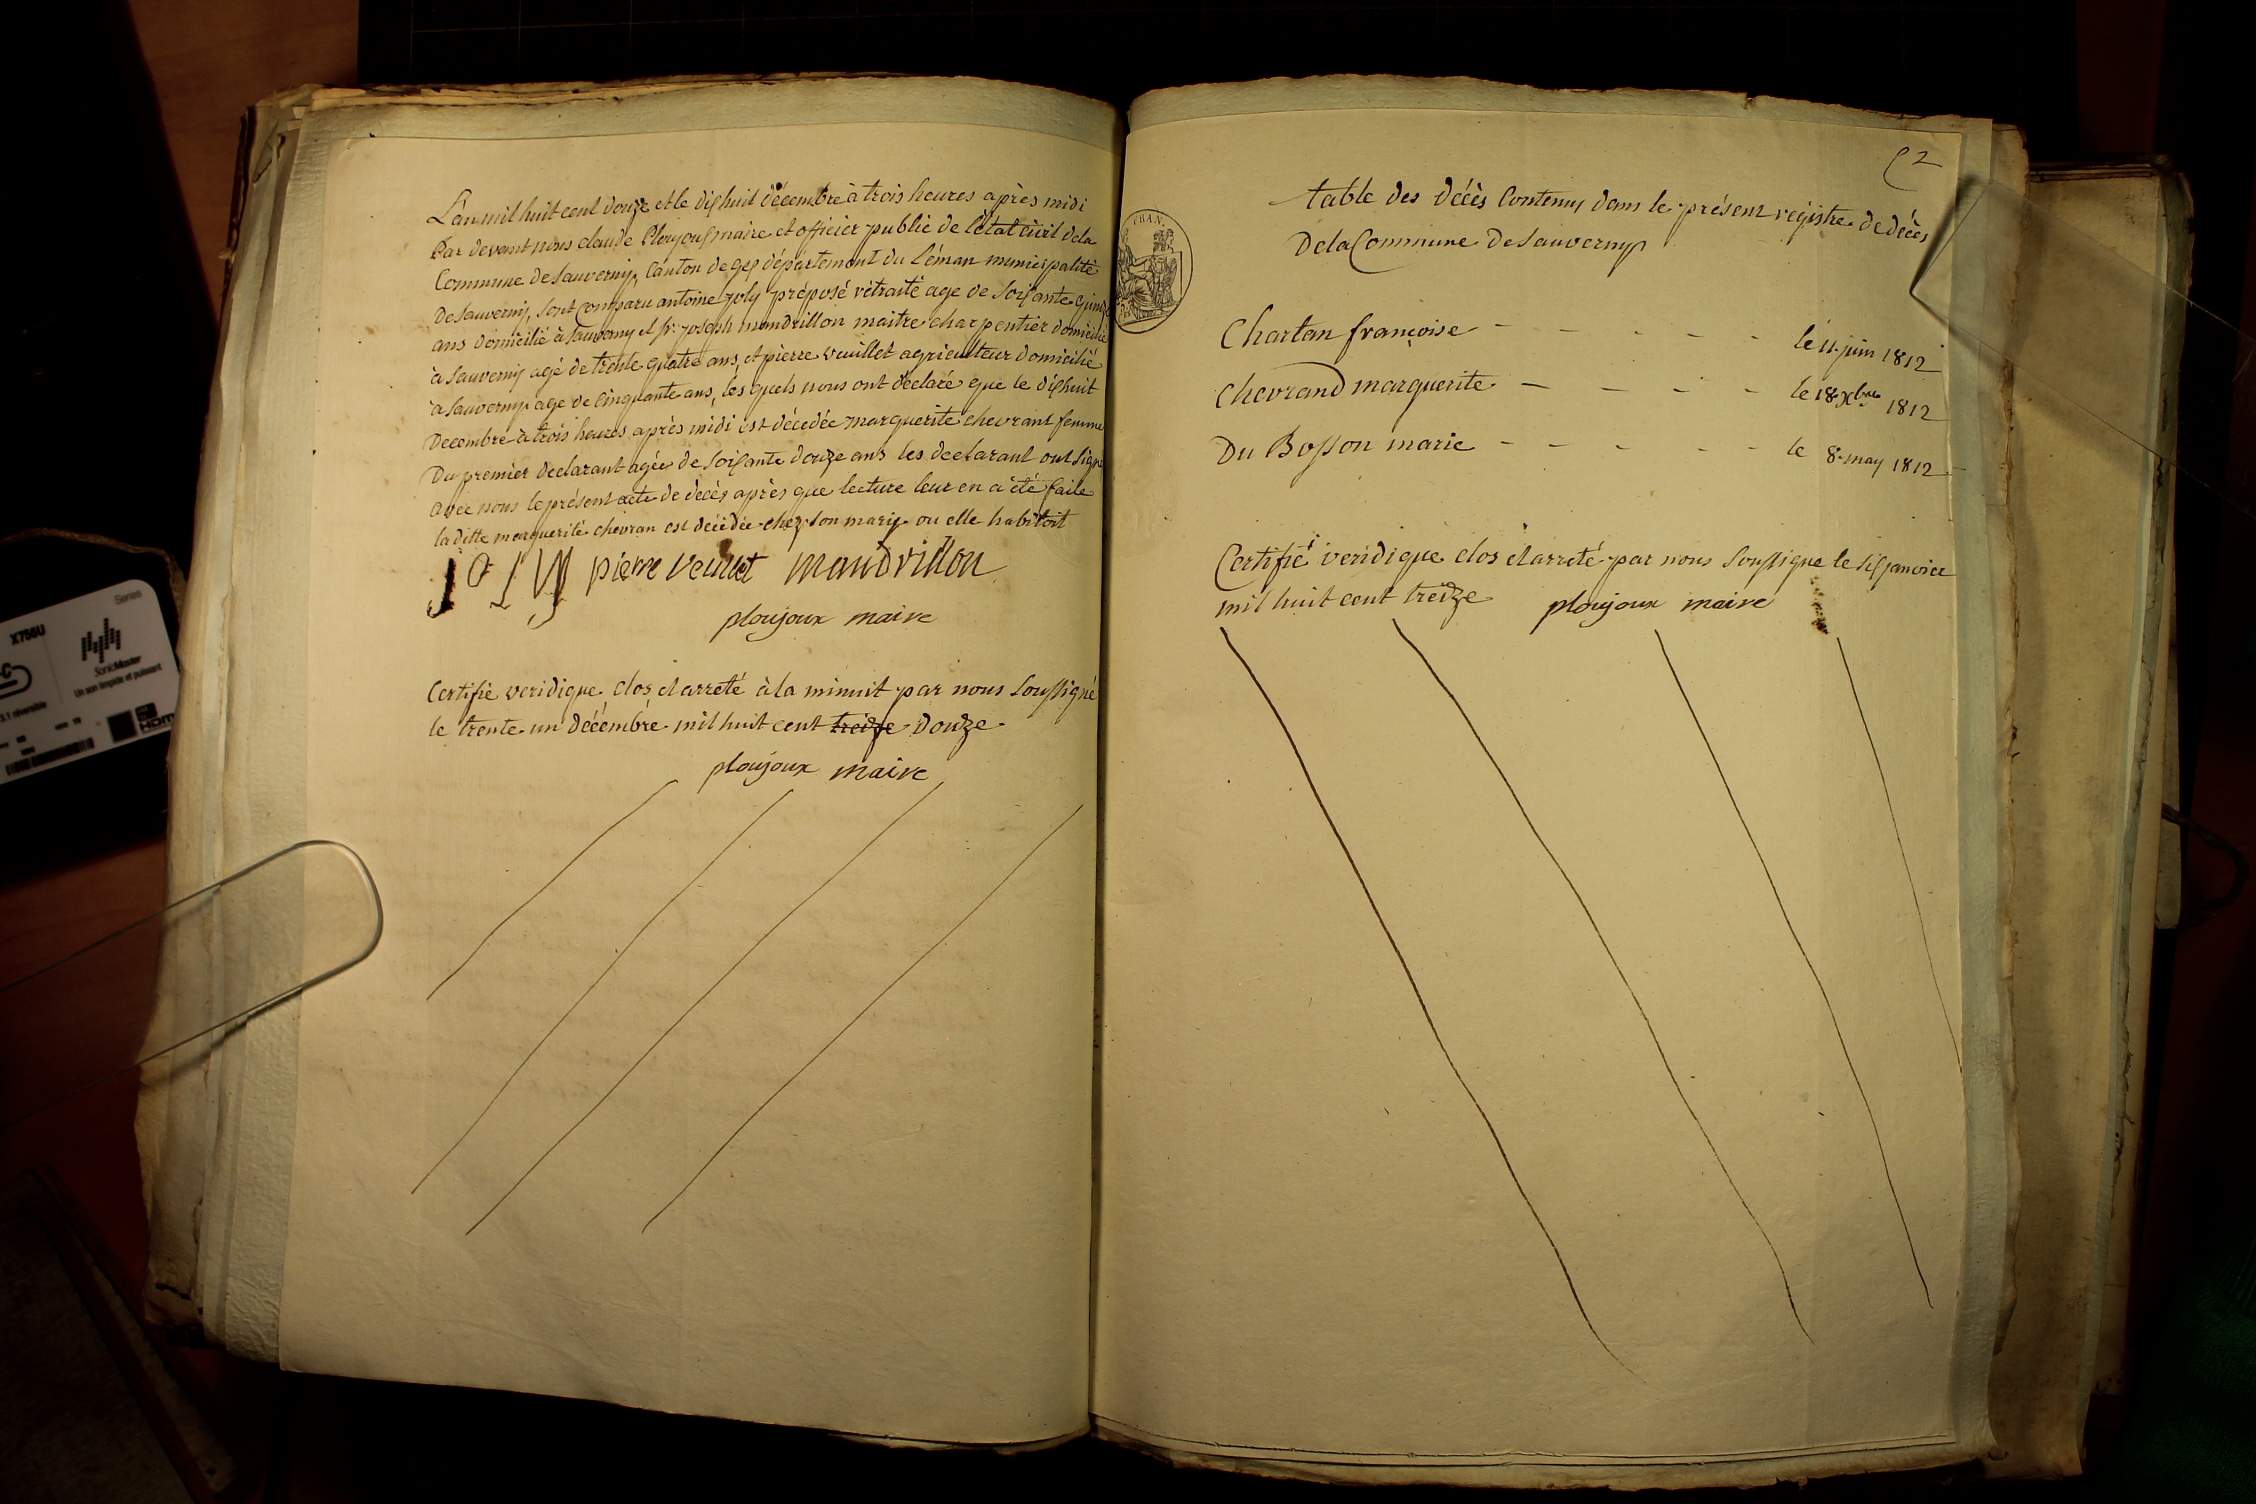 L'an mil huit cent douze et le dixhuit décembre à trois heures après midi
Par devant nous claude Ploujoux maire et officier public de l'état civil dela
Commune de Sauverny, Canton de gex département du Léman municipalité
de Sauverny, sont comparu antoine joly préposé retraité age de soixante quinze
ans domicilié à Sauverny et Sr. joseph mandrillon maitre charpentier domicilié
à Sauverny agé de trente quatre ans, et pierre vuillet agriculteur domicilié
à Sauverny age de Cinquante ans, les quels nous ont déclaré que le dixhuit
Decembre à trois heures après midi est décedée marguerite chevrant femme
Du premier declarant agée de soixante douze ans les declarant ont signé
avec nous le présent acte de décès après que lecture leur en a été faite
la ditte marguerite chevran est décédée chez son mary ou elle habitoit
JOLY pierre veuillet mandrillon
ploujoux maire
Certifié veridique clos et arreté à la minuit par nous Soussigné
le trente un décémbre mil huit cent treize douze
ploujoux maire
FRAN.
2
table des décès Contenus dans le présent régistre de décès
De la Commune de Sauverny
Chartan françoise le 11 juin 1812
Chevrand marguerite le 18 Xbre 1812
Du Bosson marie le 8 may 1812
Certifié veridique clos et arreté par nous Soussigné le six janvier
mil huit cent treize ploujoux maire
Series
X756U
SonicMaster
Un son limpide et puissant
3.1 réversible